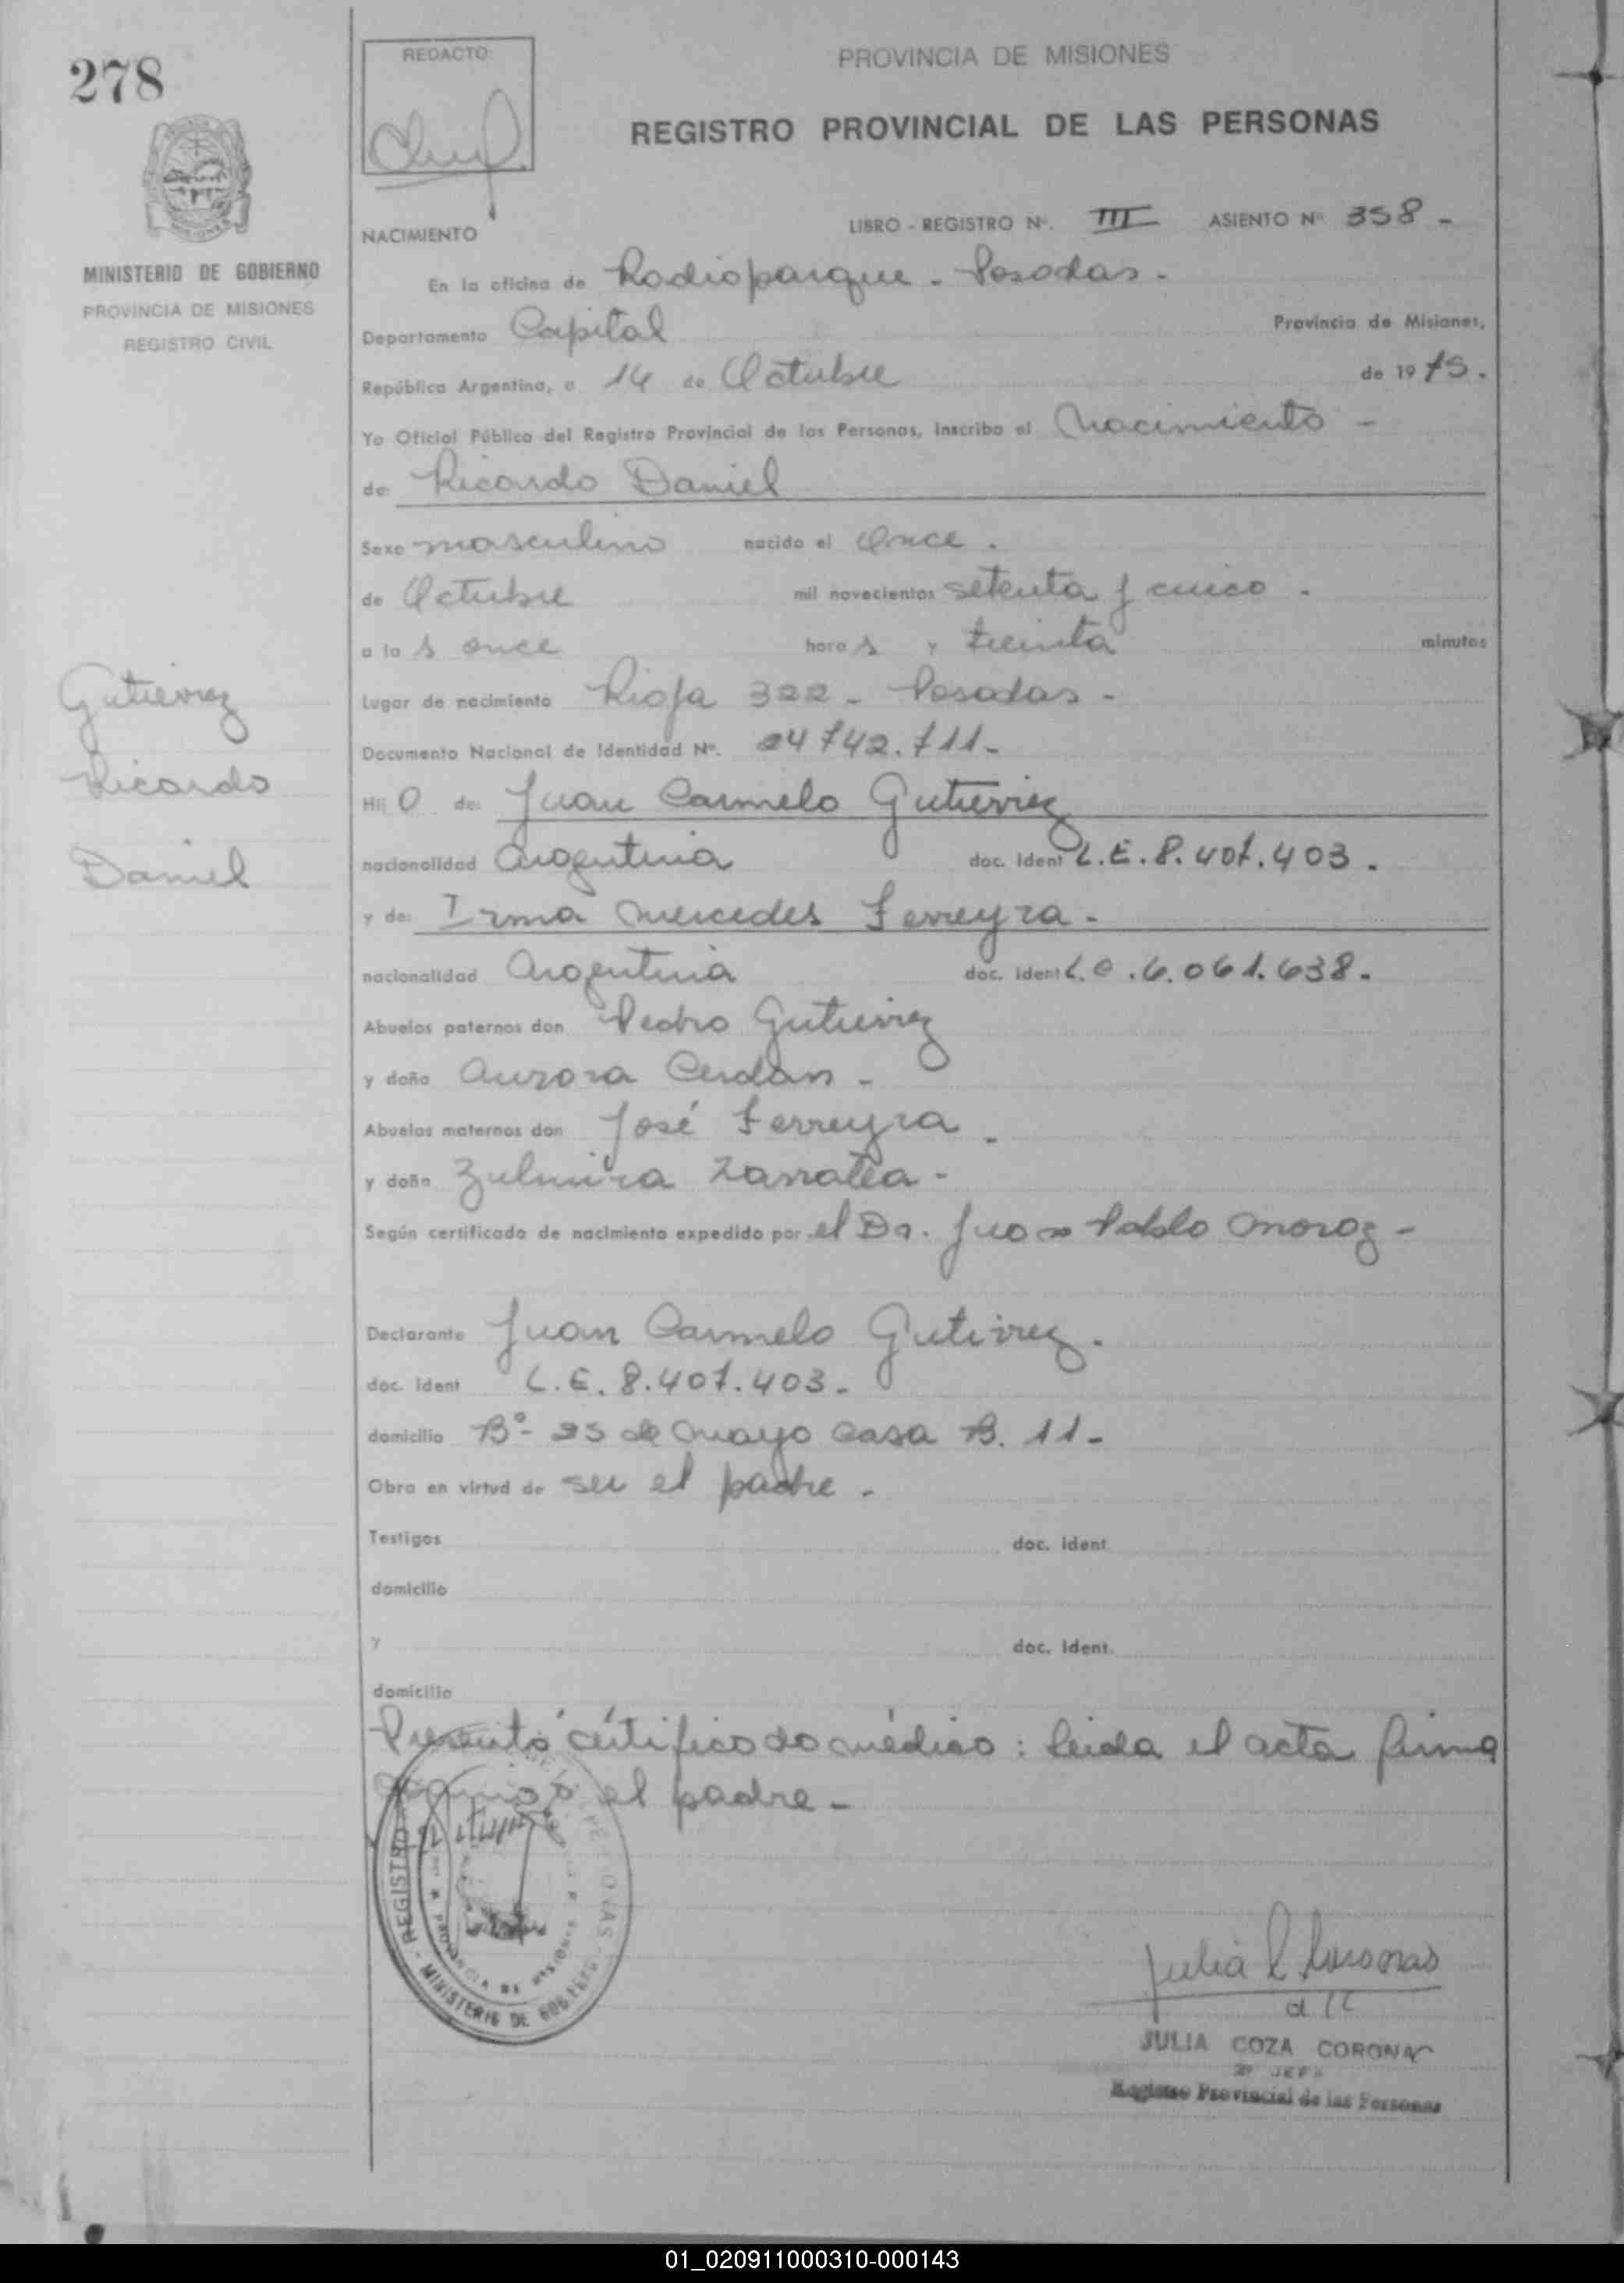 278
REDACTO
PROVINCIA DE MISIONES
REGISTRO PROVINCIAL DE LAS PERSONAS
MINISTERIO DE GOBIERNO
PROVINCIA DE MISIONES
REGISTRO CIVIL
NACIMIENTO LIBRO - REGISTRO Nº. III ASIENTO Nº 358 -
En la oficina de Radioparque - Posadas -
Departamento Capital Provincia de Misiones,
República Argentina, a 14 de Octubre de 1975.
Yo Oficial Público del Registro Provincial de las Personas, inscribo el Nacimiento -
de Ricardo Daniel
Sexo masculino nacido el Once .
de Octubre mil novecientos setenta y cinco .
a la s once hora s y treinta minutos
Lugar de nacimiento Rioja 322 - Posadas -
Documento Nacional de Identidad Nº. 24742.711-
Hij o de: Juan Carmelo Gutierrez
nacionalidad Argentina doc. Ident L.E. 8.407.403 .
y de: Irma Mercedes Ferreyra -
nacionalidad Argentina doc. Ident L.C. 6.061.638.
Abuelos paternos don Pedro Gutierrez
y doña Aurora Cerdan -
Abuelos maternos don José Ferreyra .
y doña Zulmira Zarratea -
Según certificado de nacimiento expedido por el Dr. Juan Pablo Moroz -
Declarante Juan Carmelo Gutierrez .
doc. Ident L.E. 8.407.403 -
domicilio Bº- 25 de Mayo casa B. 11-
Obra en virtud de ser el padre .
Testigos doc. Ident
domicilio
y doc. Ident.
domicilio
Presentó certificado médico : leida el acta firma
el padre -
Gutierrez
Ricardo
Daniel
REGISTRO
MINISTERIO DE GOBIERNO
PROVINCIA DE MISIONES
JULIA COZA CORONA
2º JEFE
Registro Provincial de las Personas
01_020911000310-000143